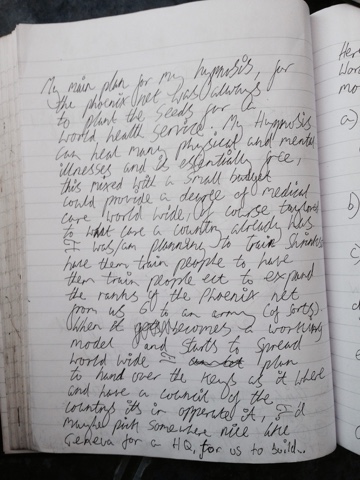 My main plan for my hypnosis, for
the phoenix net was always
to plant the seeds for a
world health service. My Hypnosis
can heal many physical and mental
illnesses and its essentially free,
this mixed with a small budget
could provide a degree of medical
care world wide, of course taylored
to what care a country already has
I was/am planning to train Shrinks
have them train people to have
them train people ect to expand
the ranks of the Phoenix net
from us 6 to an army (of sorts)
When it becomes a working
model and starts to spread
world wide I plan
to hand over the keys as it where
and have a council of the
countrys its in operate it, I'd
maybe pick somewhere nice like
Geneva for a HQ, for us to build.
Her
Wor
mo
a)
b)
c)